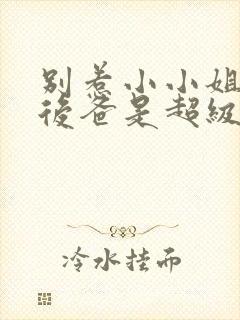 别惹小小姐
後爸是超級
冷水挂而